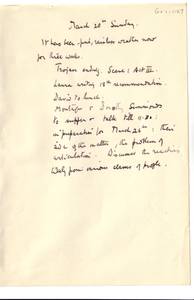 March 20th Sunday.
It has been fine, rainless weather now
for three weeks.
Trojans ending. Scene: Act III
Lawrie writing 18th recommendation.
David to lunch.
Montague & Dorothy Simmonds
to supper & talk till 11.30:
in preparation for March 24th; their
side of the matter, the problem of
articulation. Discussed the reaction
likely from various classes of people.